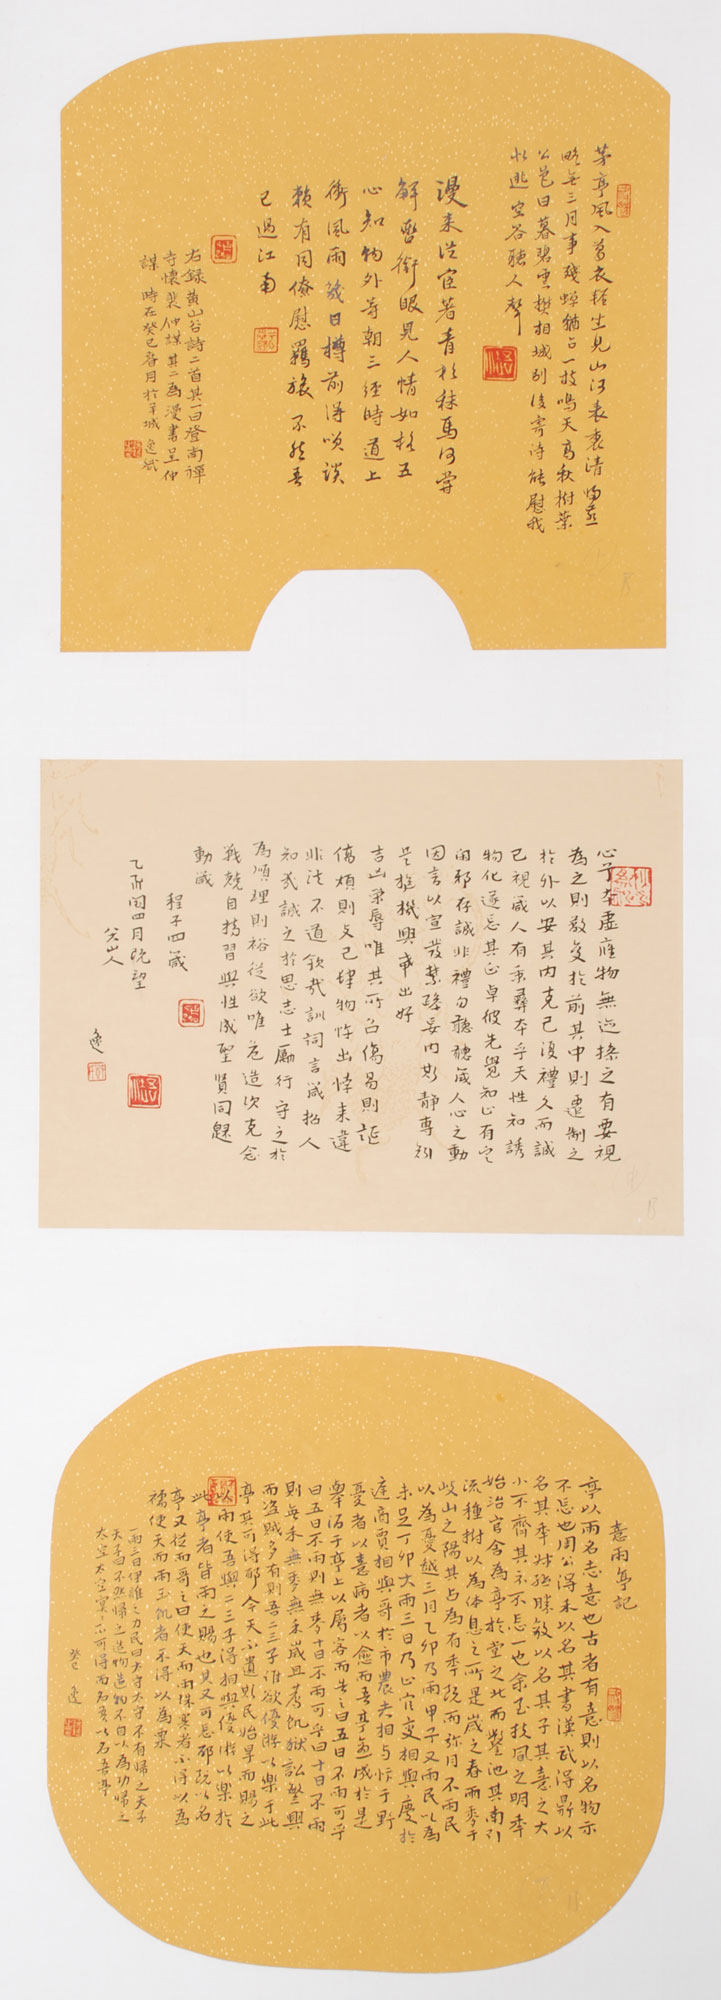 茅亭風入葛衣輕坐見山河表裏清歸燕
略無三月事殘蟬猶占一枝鳴天高秋樹葉
公邑日暮碧雲樊相城別後寄詩能慰我
似逃空谷聽人聲
漫來從宦著青衫秣馬何嘗
解轡銜眼見人情如格五
心知物外等朝三經時道上
衝風雨幾日樽前得笑談
賴有同僚慰羈旅不然吾
已過江南
右錄黃山谷詩二首其一曰登南禪
寺懷裴仲謀其二為漫書呈仲
謀 時在癸巳杏月於羊城 逸斌
心兮本虛應物無迹操之有要視
為之則蔽交於前其中則遷制之
於外以安其內克己復禮久而誠
已視箴人有秉彝本乎天性知誘
物化遂忘其正卓彼先覺知止有定
閑邪存誠非禮勿聽聽箴人心之動
因言以宣發禁躁妄內斯靜專矧
是樞機興戎出好
吉凶榮辱唯其所召傷易則誕
傷煩則支己肆物忤出悖來違
非法不道欽哉訓詞言箴哲人
知幾誠之於思志士勵行守之於
為順理則裕從欲唯危造次克念
戰兢自持習與性成聖賢同歸
動箴
程子四箴
乙酉閏四月既望
山人
逸
喜雨亭記
亭以雨名志喜也古者有喜則以名物示
不忘也周公得禾以名其書漢武得鼎以
名其年叔孫勝敵以名其子其喜之大
小不齊其示不忘一也余至扶風之明年
始治官舍為亭於堂之北而鑿池其南引
流種樹以為休息之所是歲之春雨麥于
岐山之陽其占為有年既而彌月不雨民
以為憂越三月乙卯乃雨甲子又雨民以為
未足丁卯大雨三日乃止官吏相與慶於
庭商賈相與歌於市農夫相与忭于野
憂者以喜病者以愈而吾亭適成於是
舉酒于亭上以屬客而告之曰五日不雨可乎
曰五日不雨則無麥十日不雨可乎曰十日不雨
則無禾無麥無禾歲且荐飢獄訟繁興
而盜賊多有則吾二三子雖欲優游以樂于此
亭其可得耶今天不遺斯民始旱而賜之
以雨使吾與二三子得相與優游以樂於
此亭者皆雨之賜也其又可忘耶既以名
亭又從而歌之曰使天而雨珠寒者不得以為
襦使天而雨玉飢者不得以為粟
一雨三日伊誰之力民曰太守太守不有歸之天子
天子曰不然歸之造物造物不自以為功歸之
太空太空冥冥不可得而名吾以名吾亭
癸巳 逸